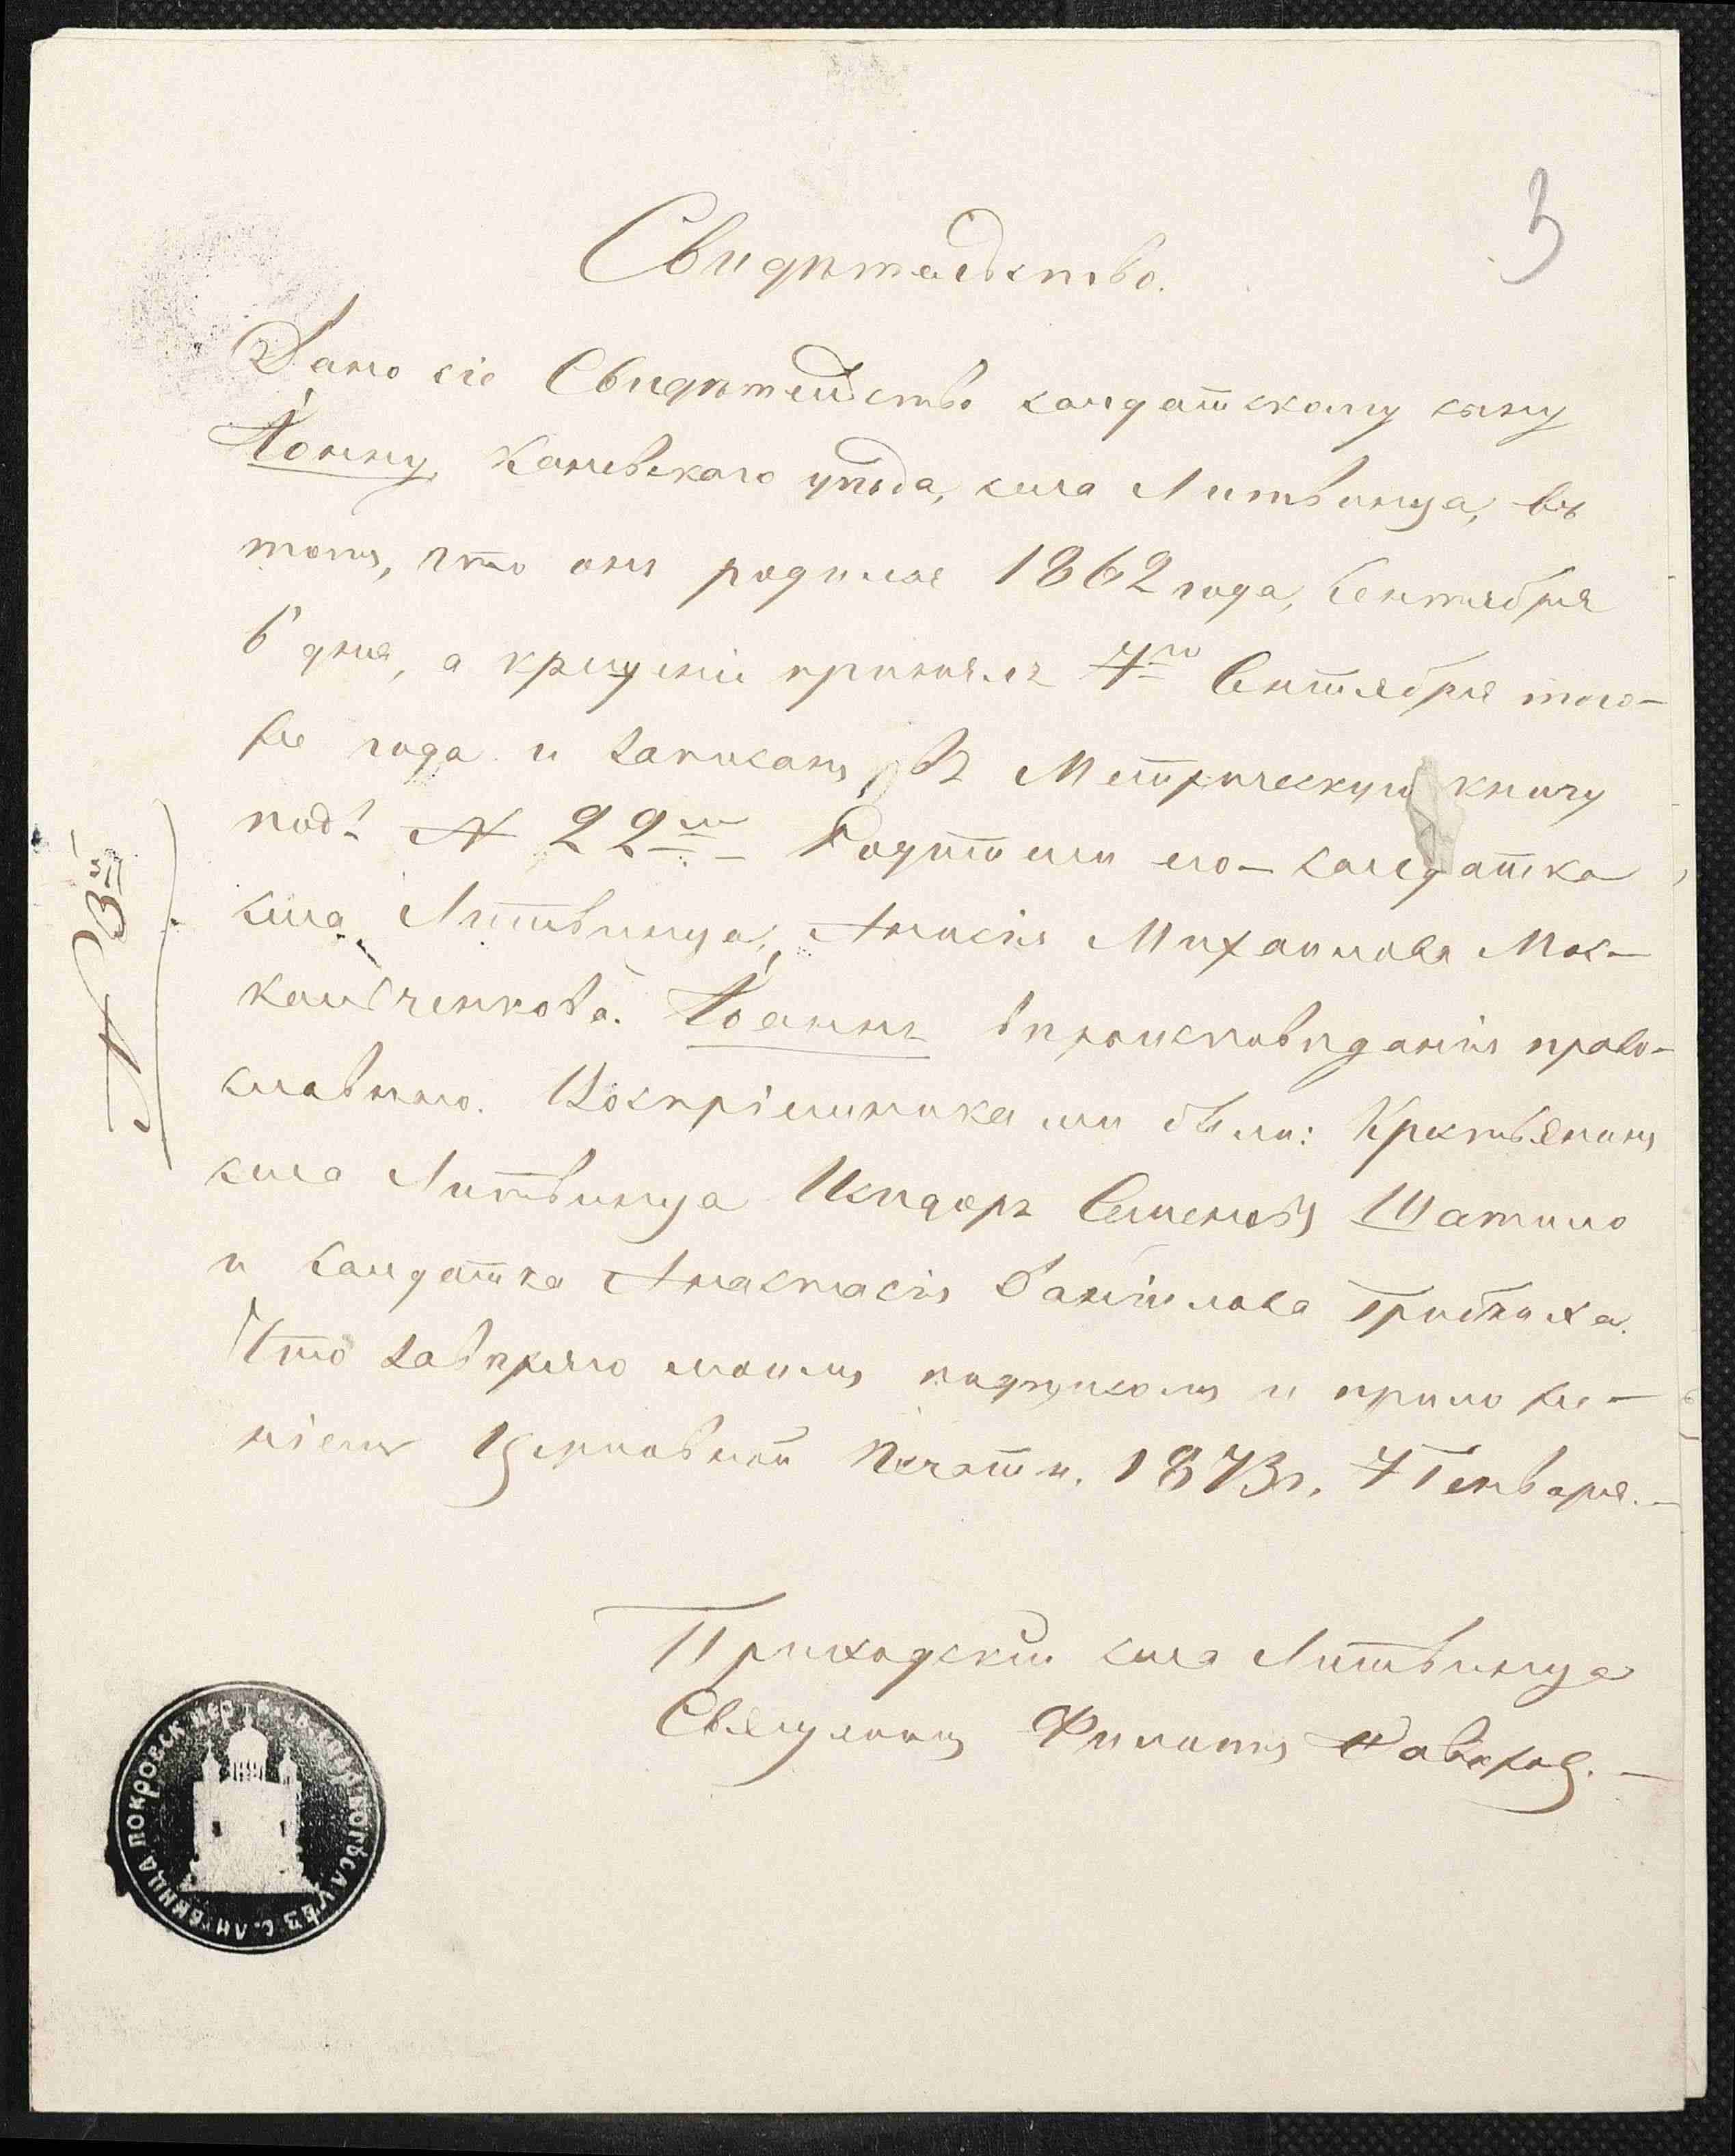 3
Свидѣтельство.
Дано сіе Свидѣтельство солдатскому сыну
Іоанну, Каневскаго уѣзда, села Литвинца, въ
томъ, что онъ родился 1862 года, Сентября
6 дня, а крещеніе принялъ 7го Сентября того-
же года и записанъ въ Метрическую книгу
подъ № 22мъ – Родители его – солдатка
села Литвинца, Анисія Михаилова Мос-
кальченкова. Іоаннъ вѣроисповѣданія право-
славнаго. Воспріемниками были: Крестьянинъ
села Литвинца Исидоръ Семеновъ Шатило
и солдатка Анастасія Даніилова
Что завѣряю моимъ подписомъ и приложе-
ніемъ Церковной Печати. 1873г. 7 Генваря. –
Приходскій села Литвинца
Священникъ Филиппъ
№ 3й
ПОКРОВСК ЦЕР
С. ЛИТВИНЦА